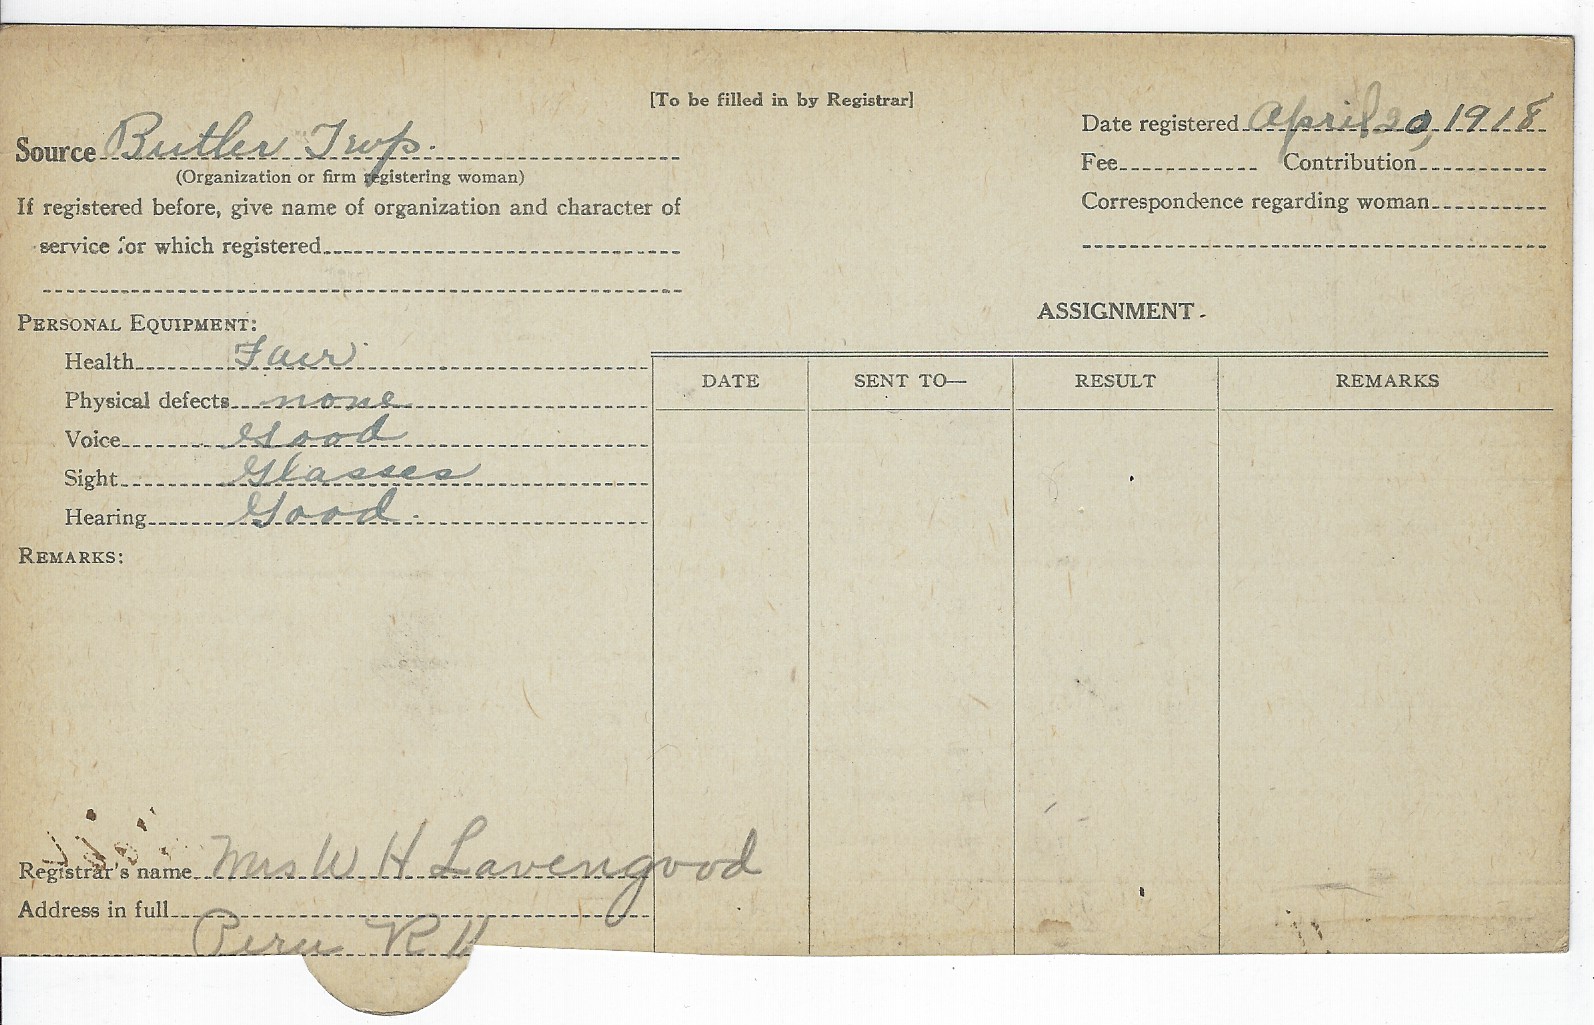 [To be filled in by Registrar]
Source Butler Twp.
(Organization or firm registering woman)
If registered before, give name of organization and character of
service for which registered
Date registered April 20, 1918
Fee Contribution
Correspondence regarding woman
PERSONAL EQUIPMENT:
Health Fair
Physical defects none
Voice Good
Sight Glasses
Hearing Good.
REMARKS:
ASSIGNMENT.
DATE SENT TO— RESULT REMARKS
Registrar's name Mrs W H Lavengood
Address in full
Peru R